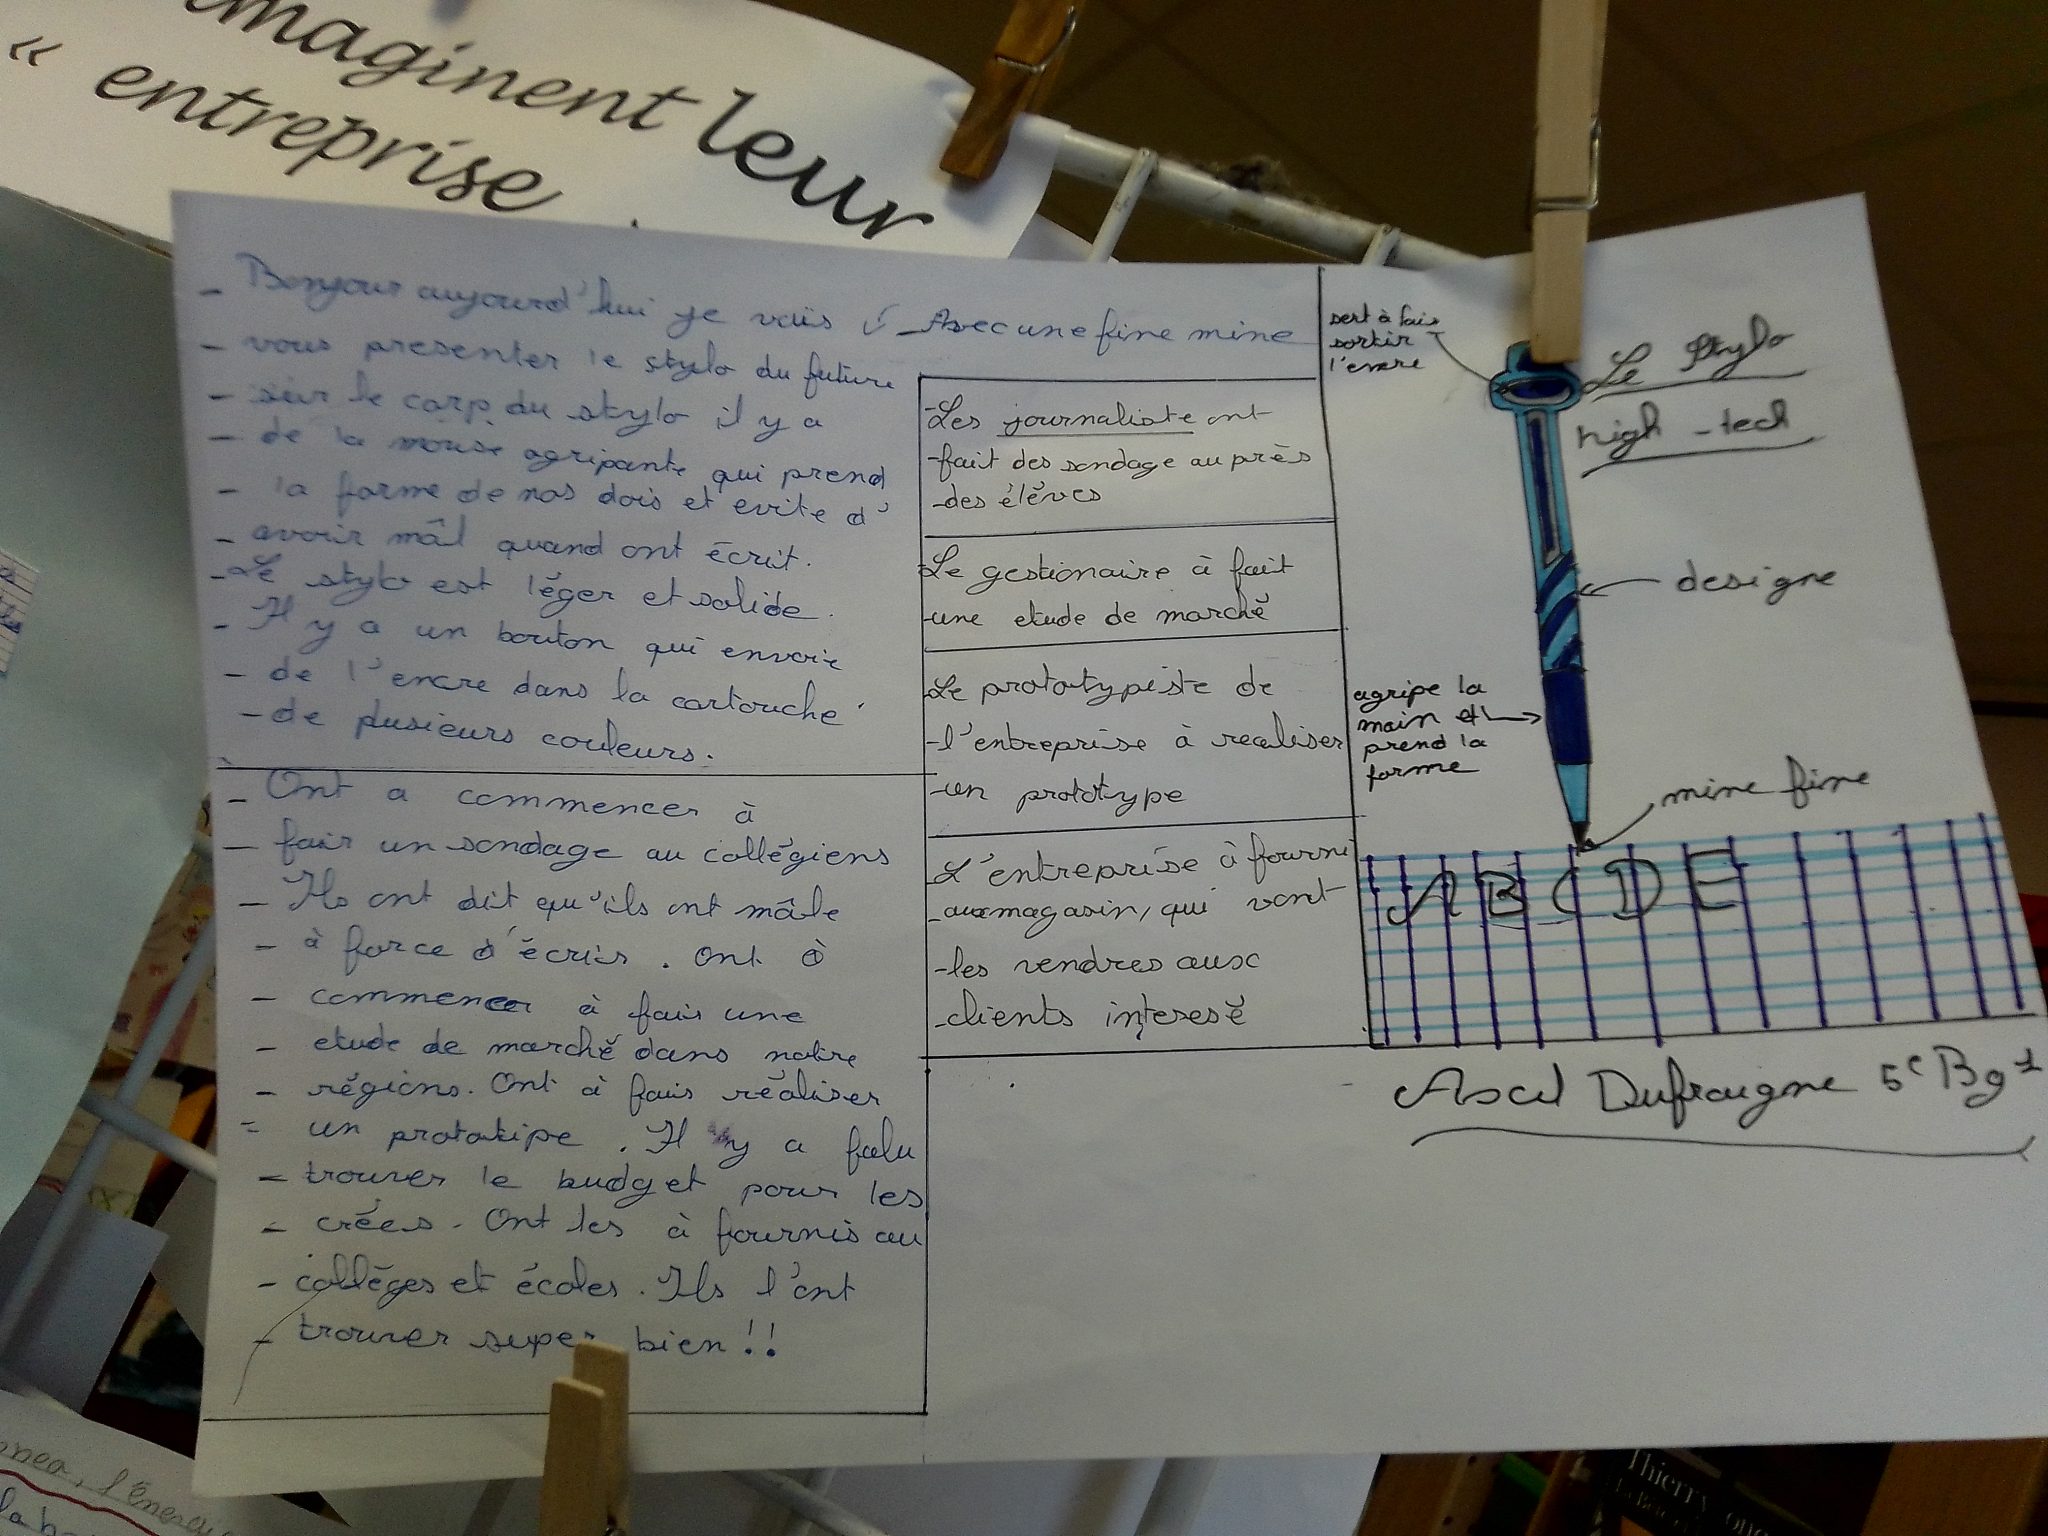 imaginent leur
« entreprise
- Bonjour aujourd'hui je vais
- vous presenter le stylo du future
- sur le corp du stylo il y a
- de la mouse agripante qui prend
- la forme de nos dois et evite d'
- avoir mâl quand ont écrit.
- Le stylo est léger et solide.
- Il y a un bouton qui envoir
- de l'encre dans la cartouche
- de plusieurs couleurs.
- Avec une fine mine
- Ont a commencer à
- fair un sondage au collégiens
- Ils ont dit qu'ils ont mâle
- à force d'écrir. Ont à
- commencer à fair une
- etude de marché dans notre
- régions. Ont à fais réaliser
- un prototipe. Il y a falu
- trouver le budget pour les
- crées. Ont les à fournis au
- colléges et écoles. Ils l'ont
- trouver super bien!!
-Les journaliste ont
-fait des sondage au près
-des élèves
-Le gestionaire à fait
-une etude de marché
-Le prototypiste de
-l'entreprise à realiser
-un prototype
-L'entreprise à fourni
-aux magasin, qui vont
-les vendres aux
-clients interesé
sert à fair
sortir
l'encre
Le stylo
high-tech
designe
agripe la
main et
prend la
forme
mine fine
A B C D E
Dufraigne 5e Bg1
l'énergie
Thierry